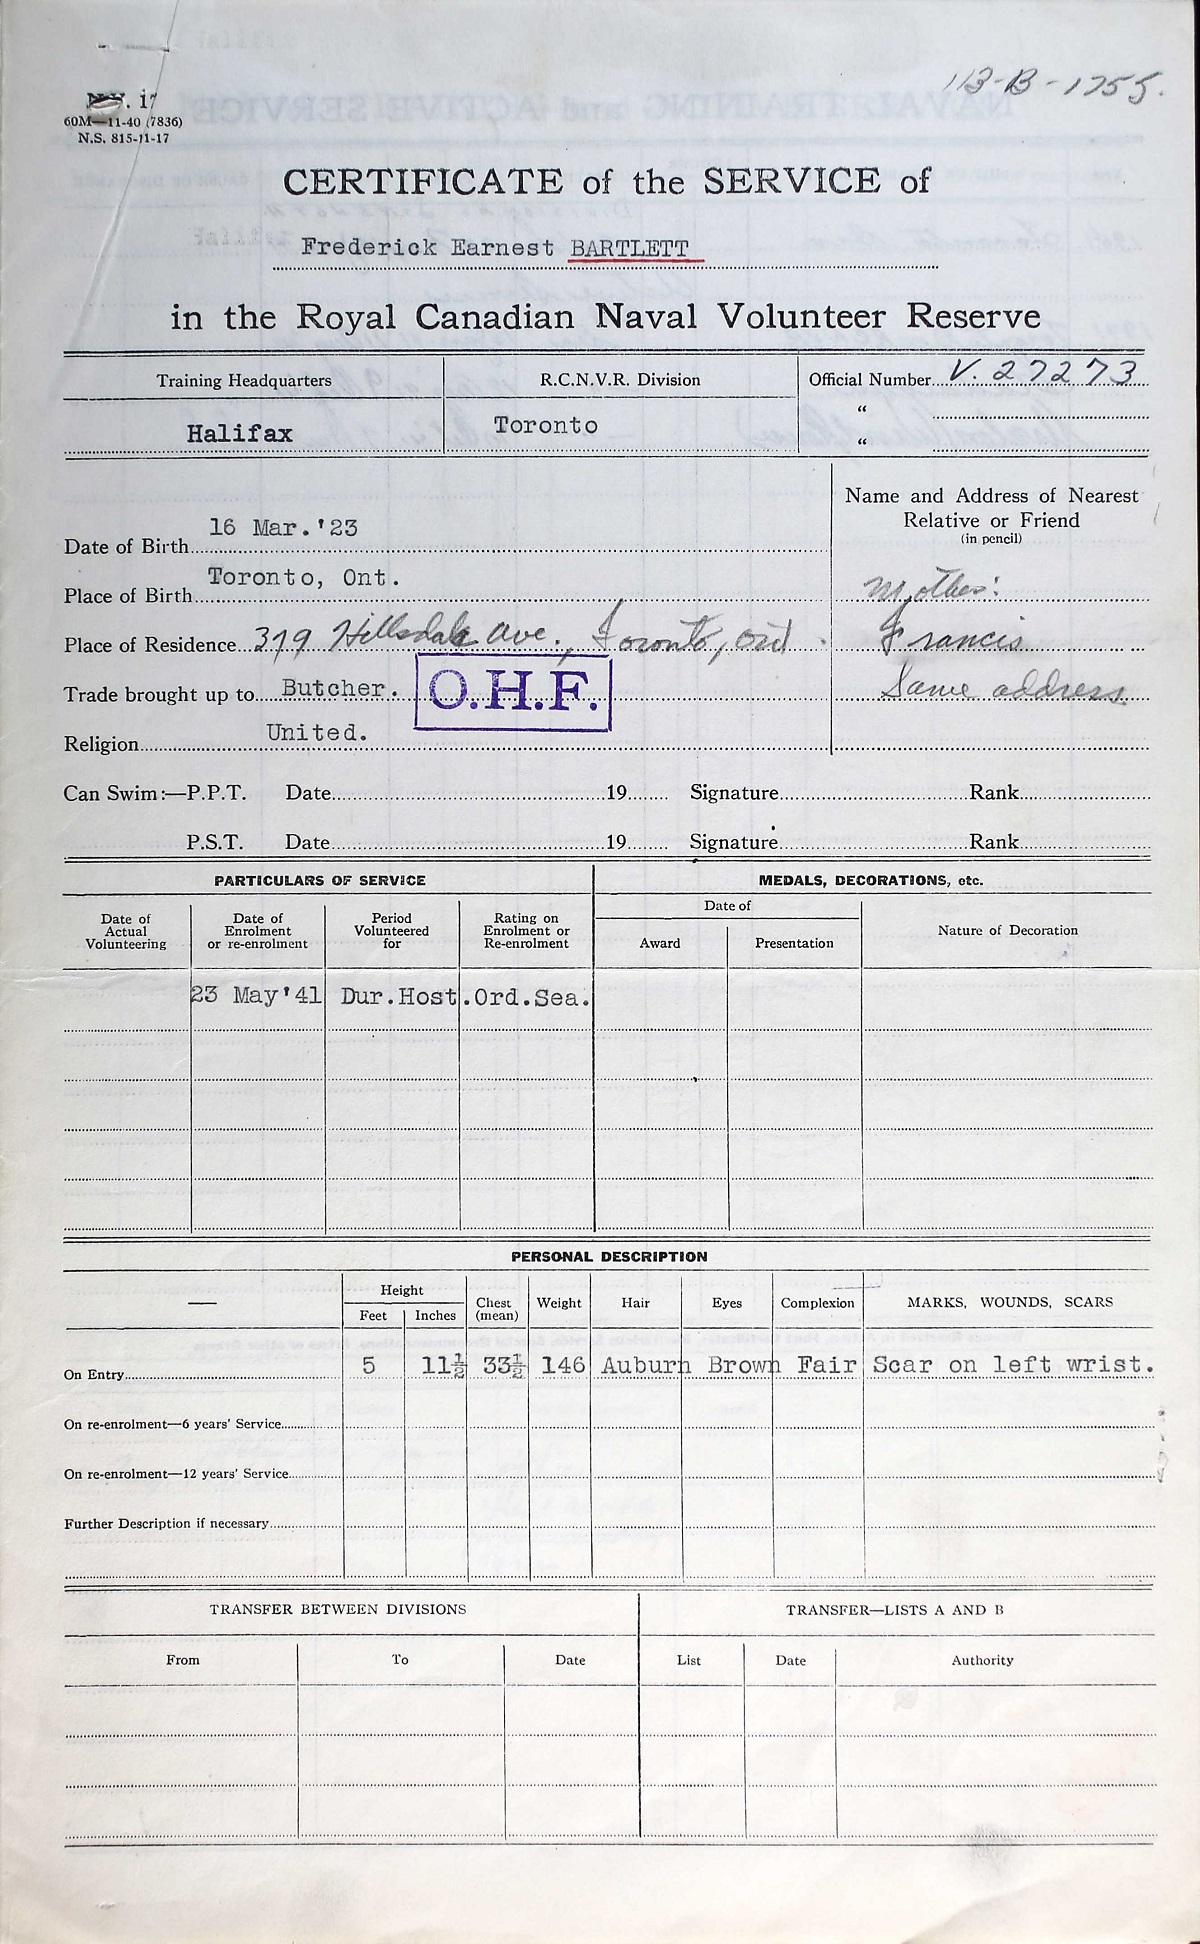 113-B-1755.
N.V. 17
60M—11-40 (7836)
N.S. 815-11-17
CERTIFICATE of the SERVICE of
Frederick Earnest BARTLETT
in the Royal Canadian Naval Volunteer Reserve
Training Headquarters R.C.N.V.R. Division Official Number V. 27273
Halifax Toronto "
"
Name and Address of Nearest
Relative or Friend
(in pencil)
Date of Birth 16 Mar.'23
Place of Birth Toronto, Ont. Mother:
Place of Residence 379 Hillsdale Ave., Toronto, Ont. Francis
Trade brought up to Butcher. O.H.F. Same address
Religion United.
Can Swim:—P.P.T. Date 19 Signature Rank
P.S.T. Date 19 Signature Rank
PARTICULARS OF SERVICE MEDALS, DECORATIONS, etc.
Date of Actual Volunteering Date of Enrolment or re-enrolment Period Volunteered for Rating on Enrolment or Re-enrolment Date of Award Presentation Nature of Decoration
23 May'41 Dur.Host.Ord.Sea.
PERSONAL DESCRIPTION
— Height Feet Inches Chest (mean) Weight Hair Eyes Complexion MARKS, WOUNDS, SCARS
On Entry 5 11½ 33½ 146 Auburn Brown Fair Scar on left wrist.
On re-enrolment—6 years' Service
On re-enrolment—12 years' Service
Further Description if necessary
TRANSFER BETWEEN DIVISIONS TRANSFER—LISTS A AND B
From To Date List Date Authority